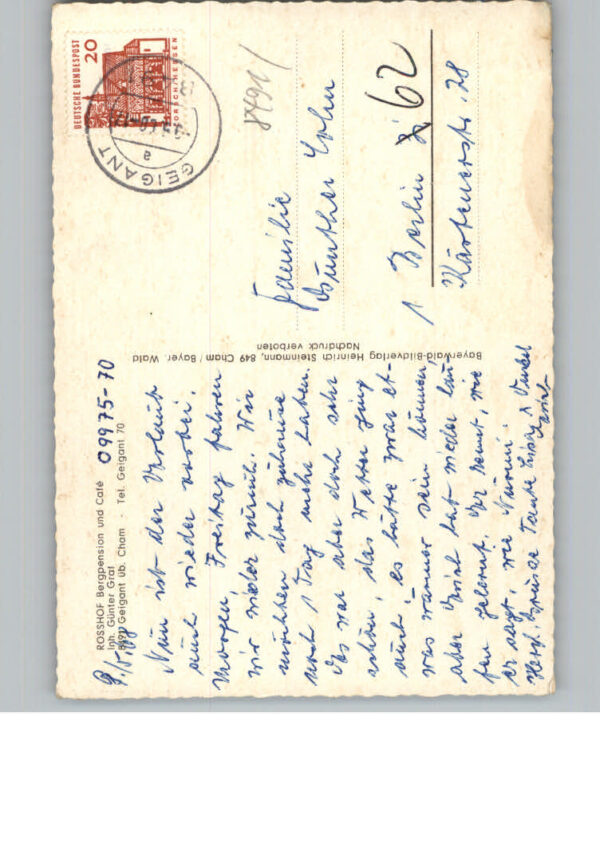 ROSSHOF Bergpension und Café
Inh. Günter Graf
8491 Geigant üb. Cham - Tel. Geigant 70
09975-70
Nun ist der Urlaub
auch wieder vorbei.
Morgen, Freitag fahren
wir wieder zurück. Wir
möchten doch zuhause
noch 1 Tag mehr haben.
Es war aber doch sehr
schön, das Wetter ging
auch, es hätte zwar et-
was wärmer sein können,
aber hat wieder lau-
fen gelernt. Ihr kennt, wie
er sagt, wie
Herzl. Grüsse Tante &
Bayerwald-Bildverlag Heinrich Steinmann, 849 Cham / Bayer. Wald
Nachdruck verboten
DEUTSCHE BUNDESPOST
20
LORSCH/HESSEN
GEIGANT
a
8491/
Familie
Günther
1 Berlin 62
28